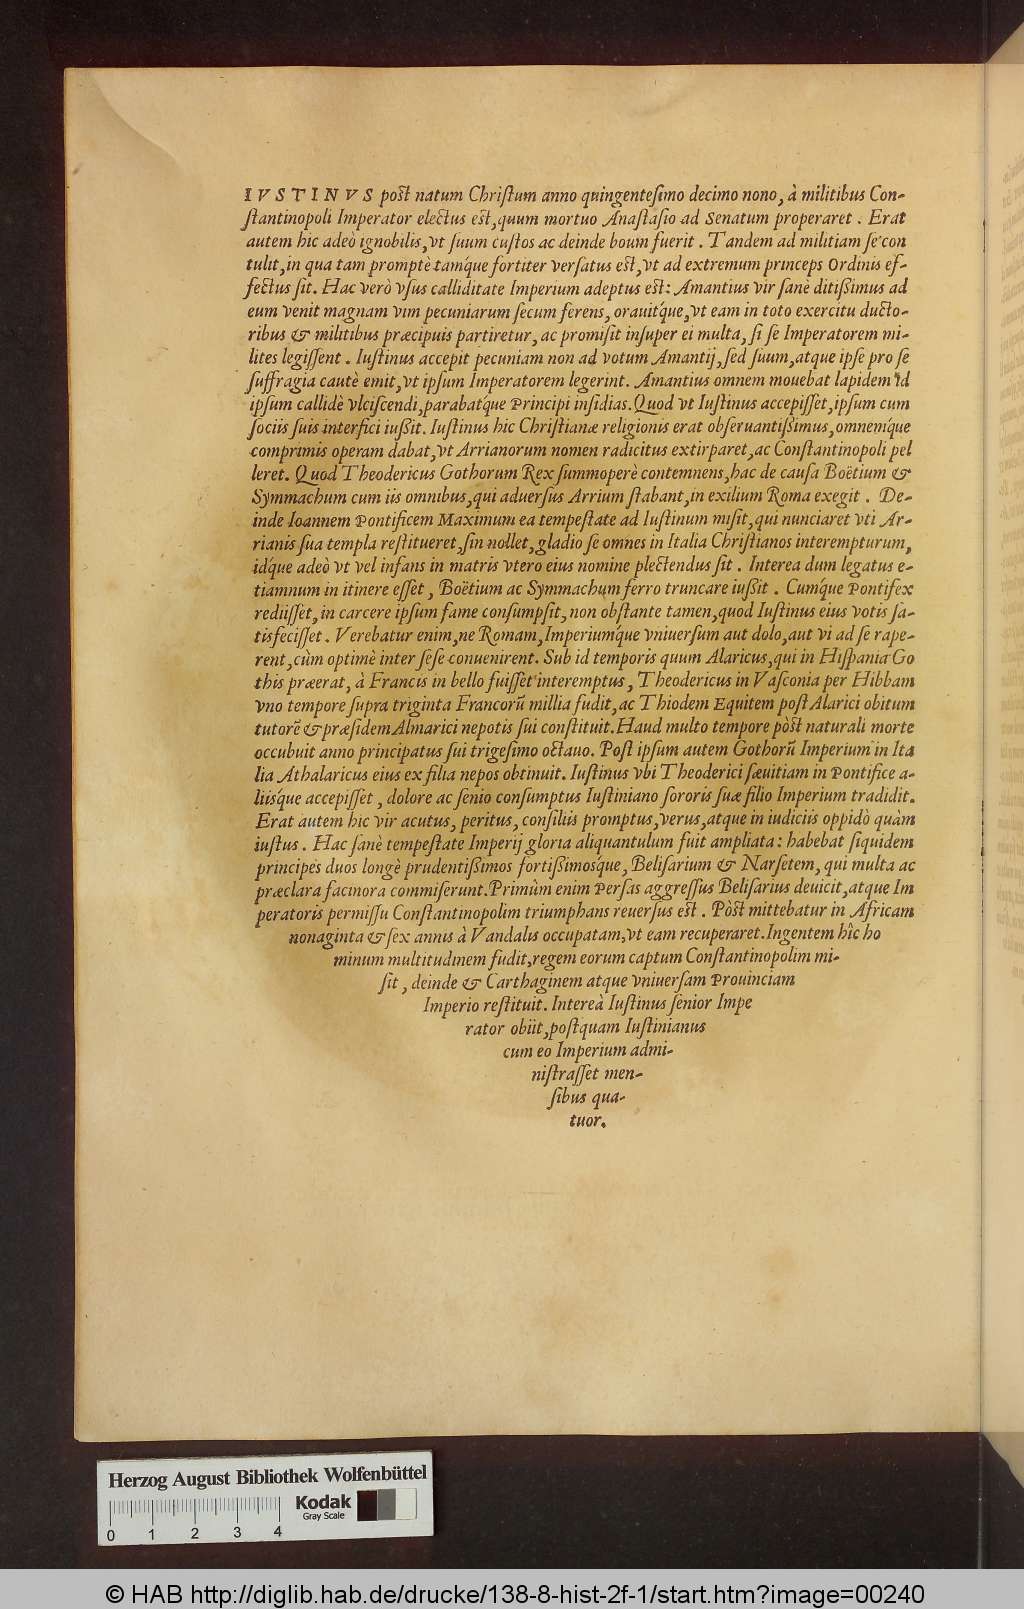 IVSTINVS poſt natum Chriſtum anno quingenteſimo decimo nono, à militibus Con-
ſtantinopoli Imperator electus eſt, quum mortuo Anaſtaſio ad Senatum properaret. Erat
autem hic adeò ignobilis, vt ſuum cuſtos ac deinde boum fuerit. Tandem ad militiam ſe con
tulit, in qua tam promptè tamq́ue fortiter verſatus eſt, vt ad extremum princeps Ordinis ef-
fectus ſit. Hac verò vſus calliditate Imperium adeptus eſt: Amantius vir ſanè ditißimus ad
eum venit magnam vim pecuniarum ſecum ferens, orauitq́ue, vt eam in toto exercitu ducto-
ribus & militibus præcipuis partiretur, ac promiſit inſuper ei multa, ſi ſe Imperatorem mi-
lites legiſſent. Iuſtinus accepit pecuniam non ad votum Amantij, ſed ſuum, atque ipſe pro ſe
ſuffragia cautè emit, vt ipſum Imperatorem legerint. Amantius omnem mouebat lapidem id
ipſum callidè vlciſcendi, parabatq́ue Principi inſidias. Quod vt Iuſtinus accepiſſet, ipſum cum
ſociis ſuis interfici iußit. Iuſtinus hic Chriſtianæ religionis erat obſeruantißimus, omnemq́ue
comprimis operam dabat, vt Arrianorum nomen radicitus extirparet, ac Conſtantinopoli pel
leret. Quod Theodericus Gothorum Rex ſummoperè contemnens, hac de cauſa Boëtium &
Symmachum cum iis omnibus, qui aduerſus Arrium ſtabant, in exilium Roma exegit. De-
inde Ioannem Pontificem Maximum ea tempeſtate ad Iuſtinum miſit, qui nunciaret vti Ar-
rianis ſua templa reſtitueret, ſin nollet, gladio ſe omnes in Italia Chriſtianos interempturum,
idq́ue adeò vt vel infans in matris vtero eius nomine plectendus ſit. Interea dum legatus e-
tiamnum in itinere eſſet, Boëtium ac Symmachum ferro truncare iußit. Cumq́ue Pontifex
rediiſſet, in carcere ipſum fame conſumpſit, non obſtante tamen, quod Iuſtinus eius votis ſa-
tisfeciſſet. Verebatur enim, ne Romam, Imperiumq́ue vniuerſum aut dolo, aut vi ad ſe rape-
rent, cùm optimè inter ſeſe conuenirent. Sub id temporis quum Alaricus, qui in Hiſpania Go
this præerat, à Francis in bello fuiſſet interemptus, Theodericus in Vaſconia per Hibbam
vno tempore ſupra triginta Francorū millia fudit, ac Thiodem Equitem poſt Alarici obitum
tutorē & præſidem Almarici nepotis ſui conſtituit. Haud multo tempore pòſt naturali morte
occubuit anno principatus ſui trigeſimo octauo. Poſt ipſum autem Gothorū Imperium in Ita
lia Athalaricus eius ex filia nepos obtinuit. Iuſtinus vbi Theoderici ſæuitiam in Pontifice a-
liisq́ue accepiſſet, dolore ac ſenio conſumptus Iuſtiniano ſororis ſuæ filio Imperium tradidit.
Erat autem hic vir acutus, peritus, conſiliis promptus, verus, atque in iudiciis oppidò quàm
iuſtus. Hac ſanè tempeſtate Imperij gloria aliquantulum fuit ampliata: habebat ſiquidem
principes duos longè prudentißimos fortißimosq́ue, Beliſarium & Narſetem, qui multa ac
præclara facinora commiſerunt. Primùm enim Perſas aggreſſus Beliſarius deuicit, atque Im
peratoris permiſſu Conſtantinopolim triumphans reuerſus eſt. Pòſt mittebatur in Africam
nonaginta & ſex annis à Vandalis occupatam, vt eam recuperaret. Ingentem hîc ho
minum multitudinem fudit, regem eorum captum Conſtantinopolim mi-
ſit, deinde & Carthaginem atque vniuerſam Prouinciam
Imperio reſtituit. Intereà Iuſtinus ſenior Impe
rator obiit, poſtquam Iuſtinianus
cum eo Imperium admi-
niſtraſſet men-
ſibus qua-
tuor.
Herzog August Bibliothek Wolfenbüttel
Kodak
Gray Scale
0 1 2 3 4
© HAB http://diglib.hab.de/drucke/138-8-hist-2f-1/start.htm?image=00240